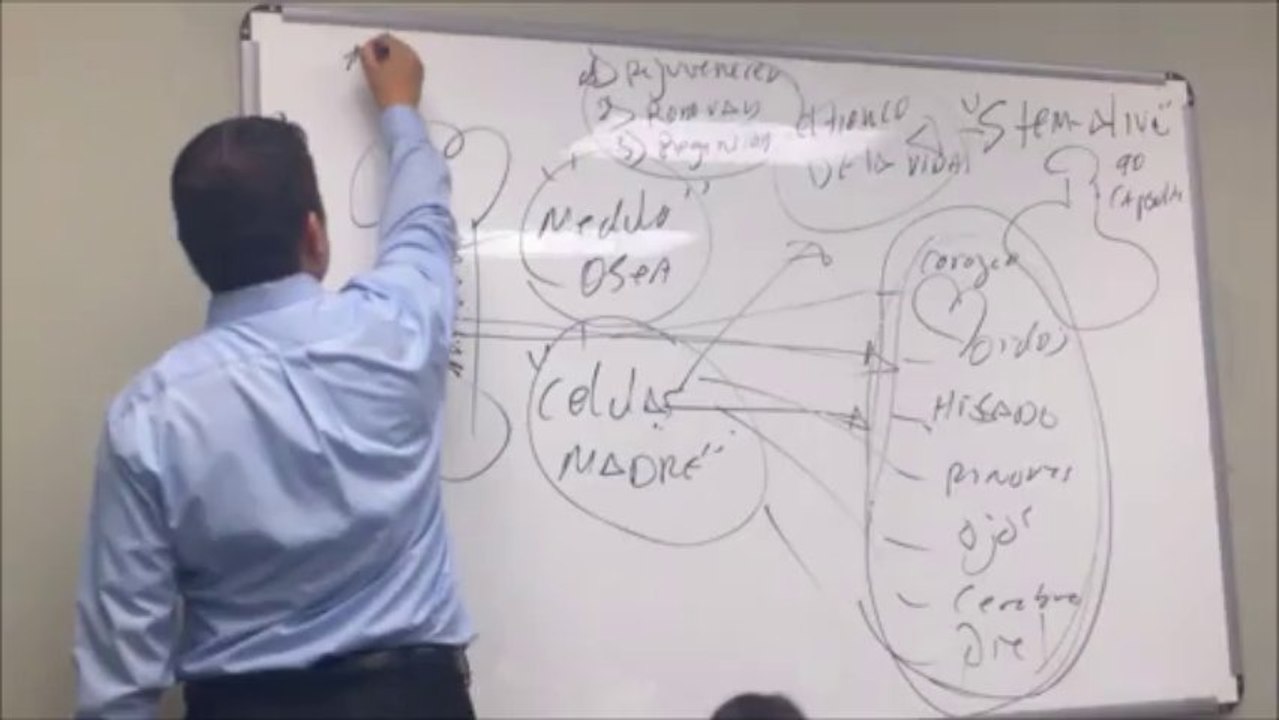 1) Rejuvenecer
2) Renovar
3)
el tronco
DE la VIDA!
"Stem-Alive"
90
Capsulas
"Medula
OSeA"
"Celulas
MADRE"
Corazon
Oidos
HIGADO
RINONES
Ojos
Cerebro
Piel